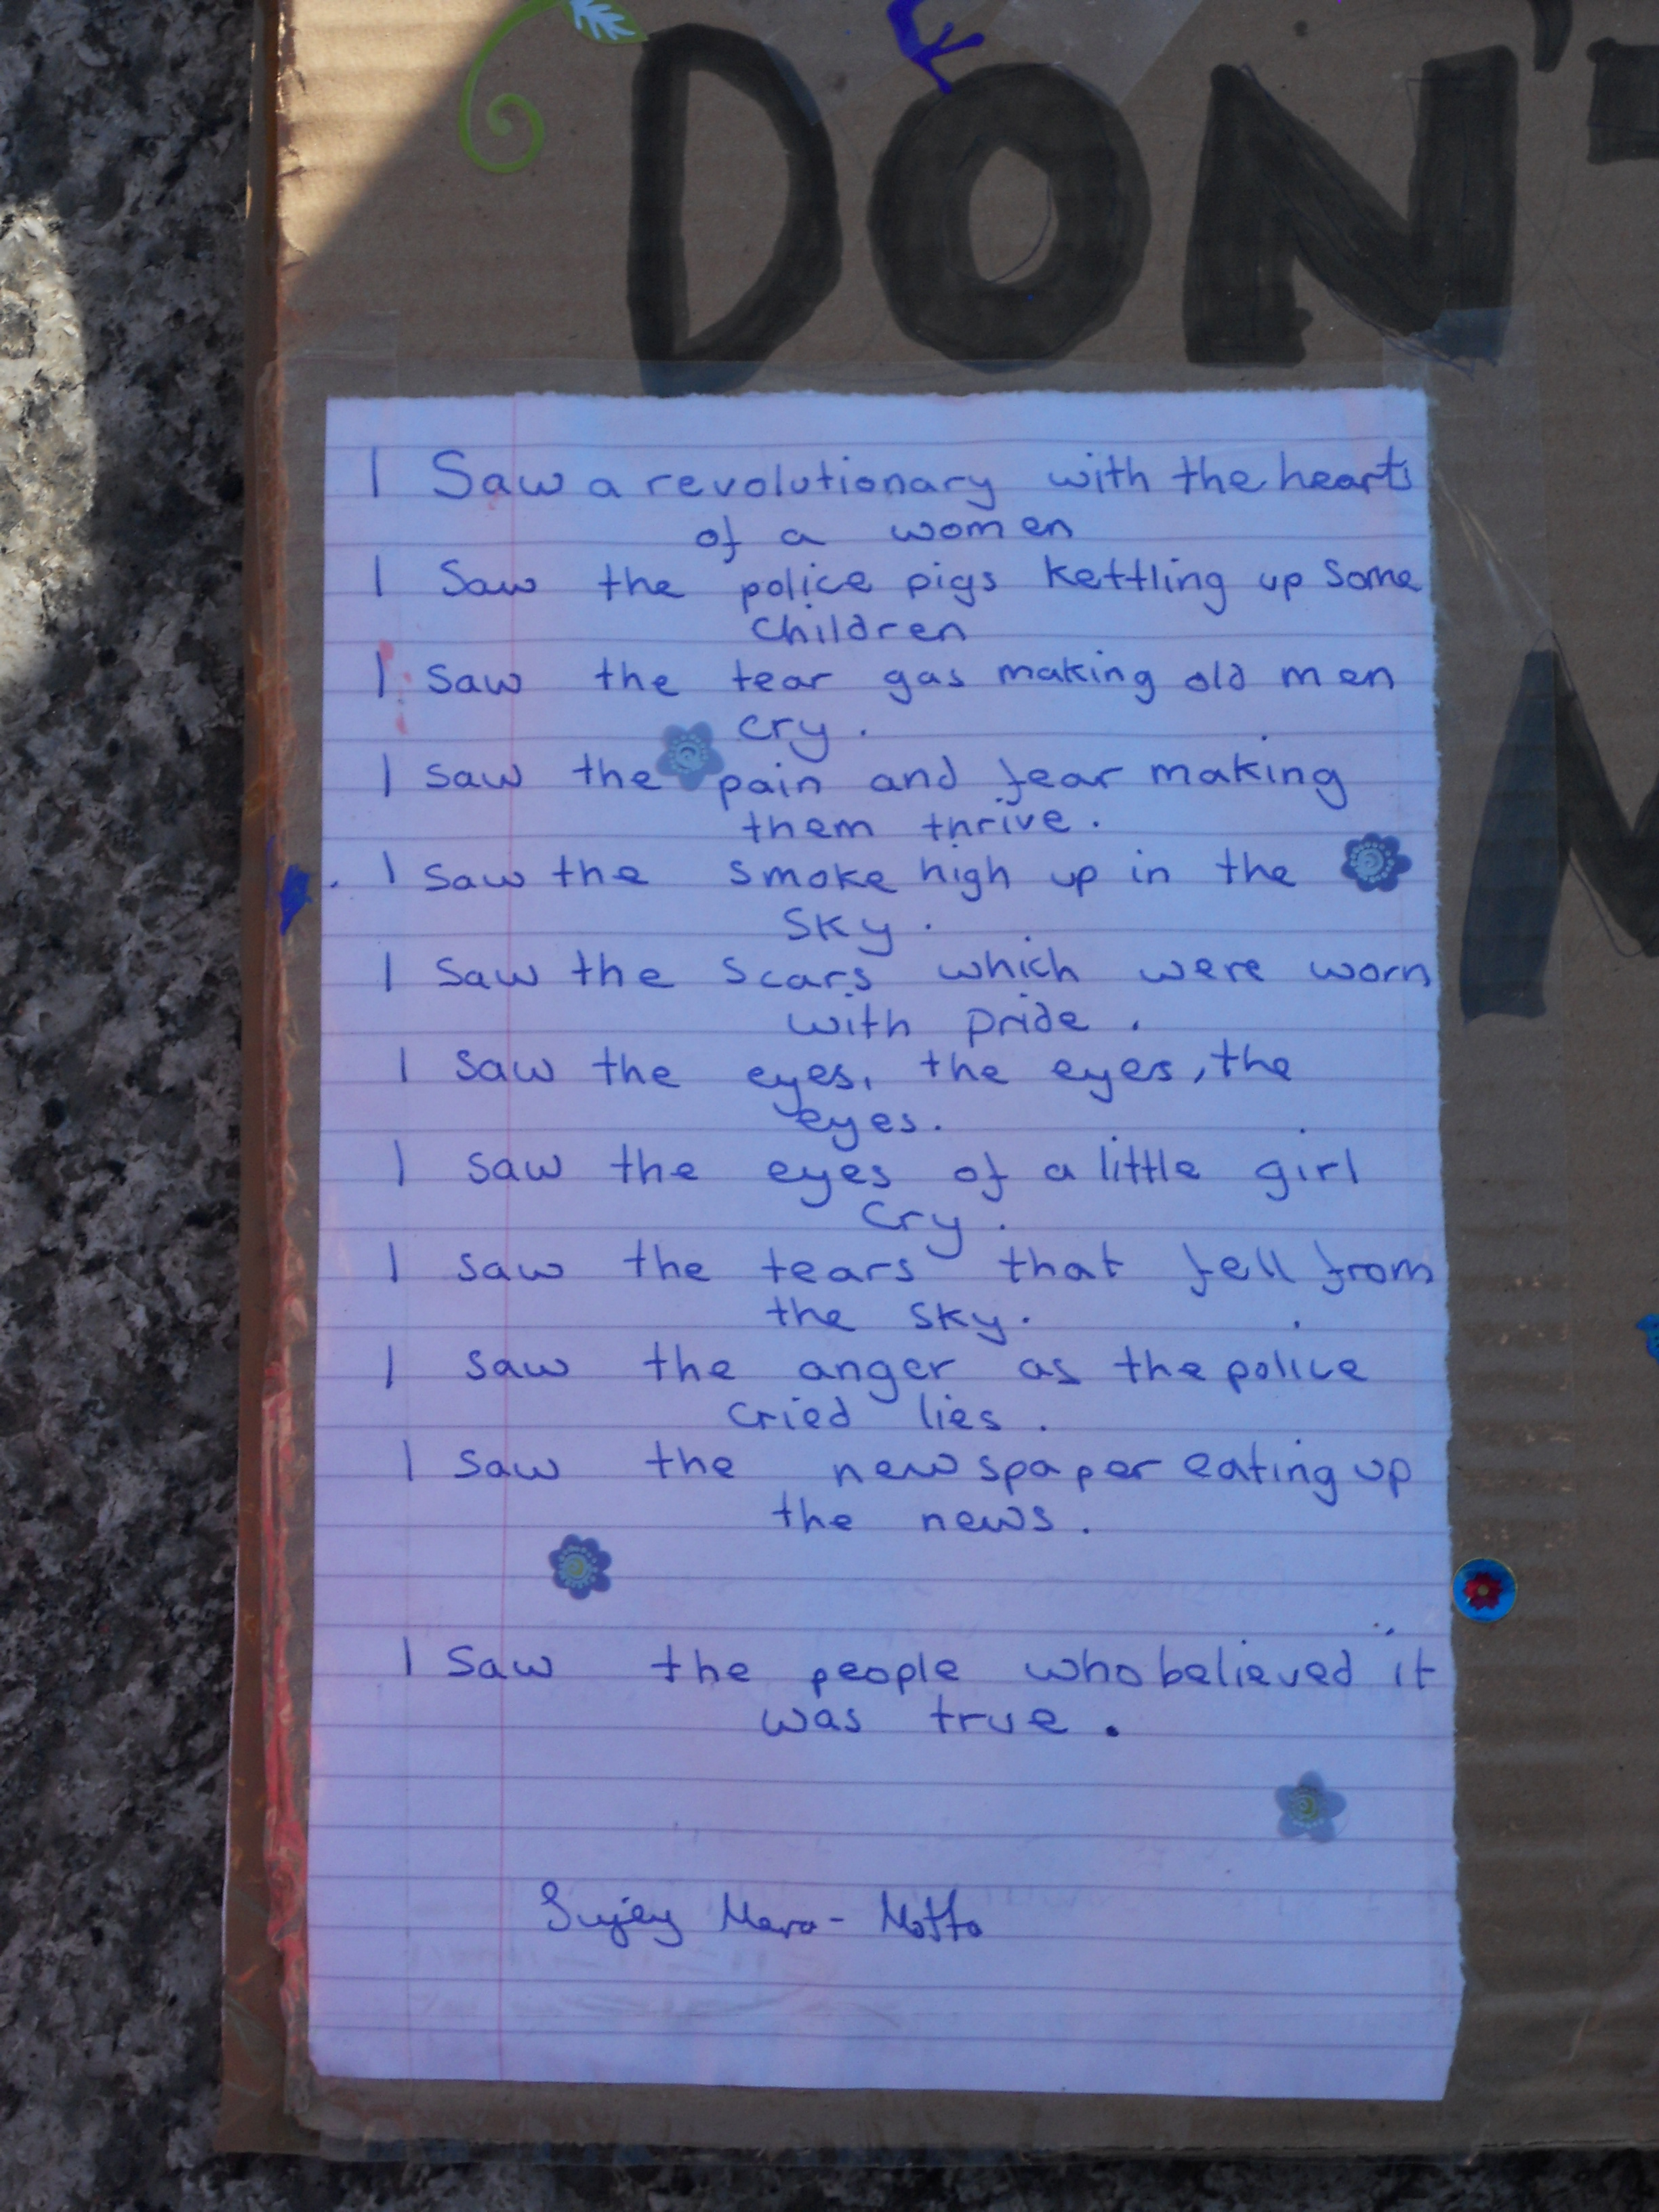 DON'T
I Saw a revolutionary with the hearts
of a women
I Saw the police pigs kettling up Some
children
I saw the tear gas making old men
cry.
I saw the pain and fear making
them thrive.
I saw the smoke high up in the
sky.
I saw the scars which were worn
with pride.
I saw the eyes, the eyes, the
eyes.
I saw the eyes of a little girl
cry.
I saw the tears that fell from
the sky.
I saw the anger as the police
cried lies.
I saw the newspaper eating up
the news.
I saw the people who believed it
was true.